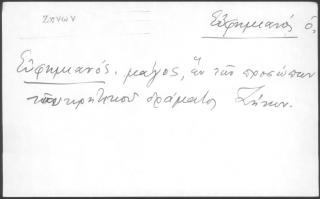 ΖΗΝΩΝ
Εὐφημιανός ὁ,
Εὐφημιανός. μάγος, ἓν τῶν προσώπων
τοῦ κρητικοῦ δράματος Ζήνων.